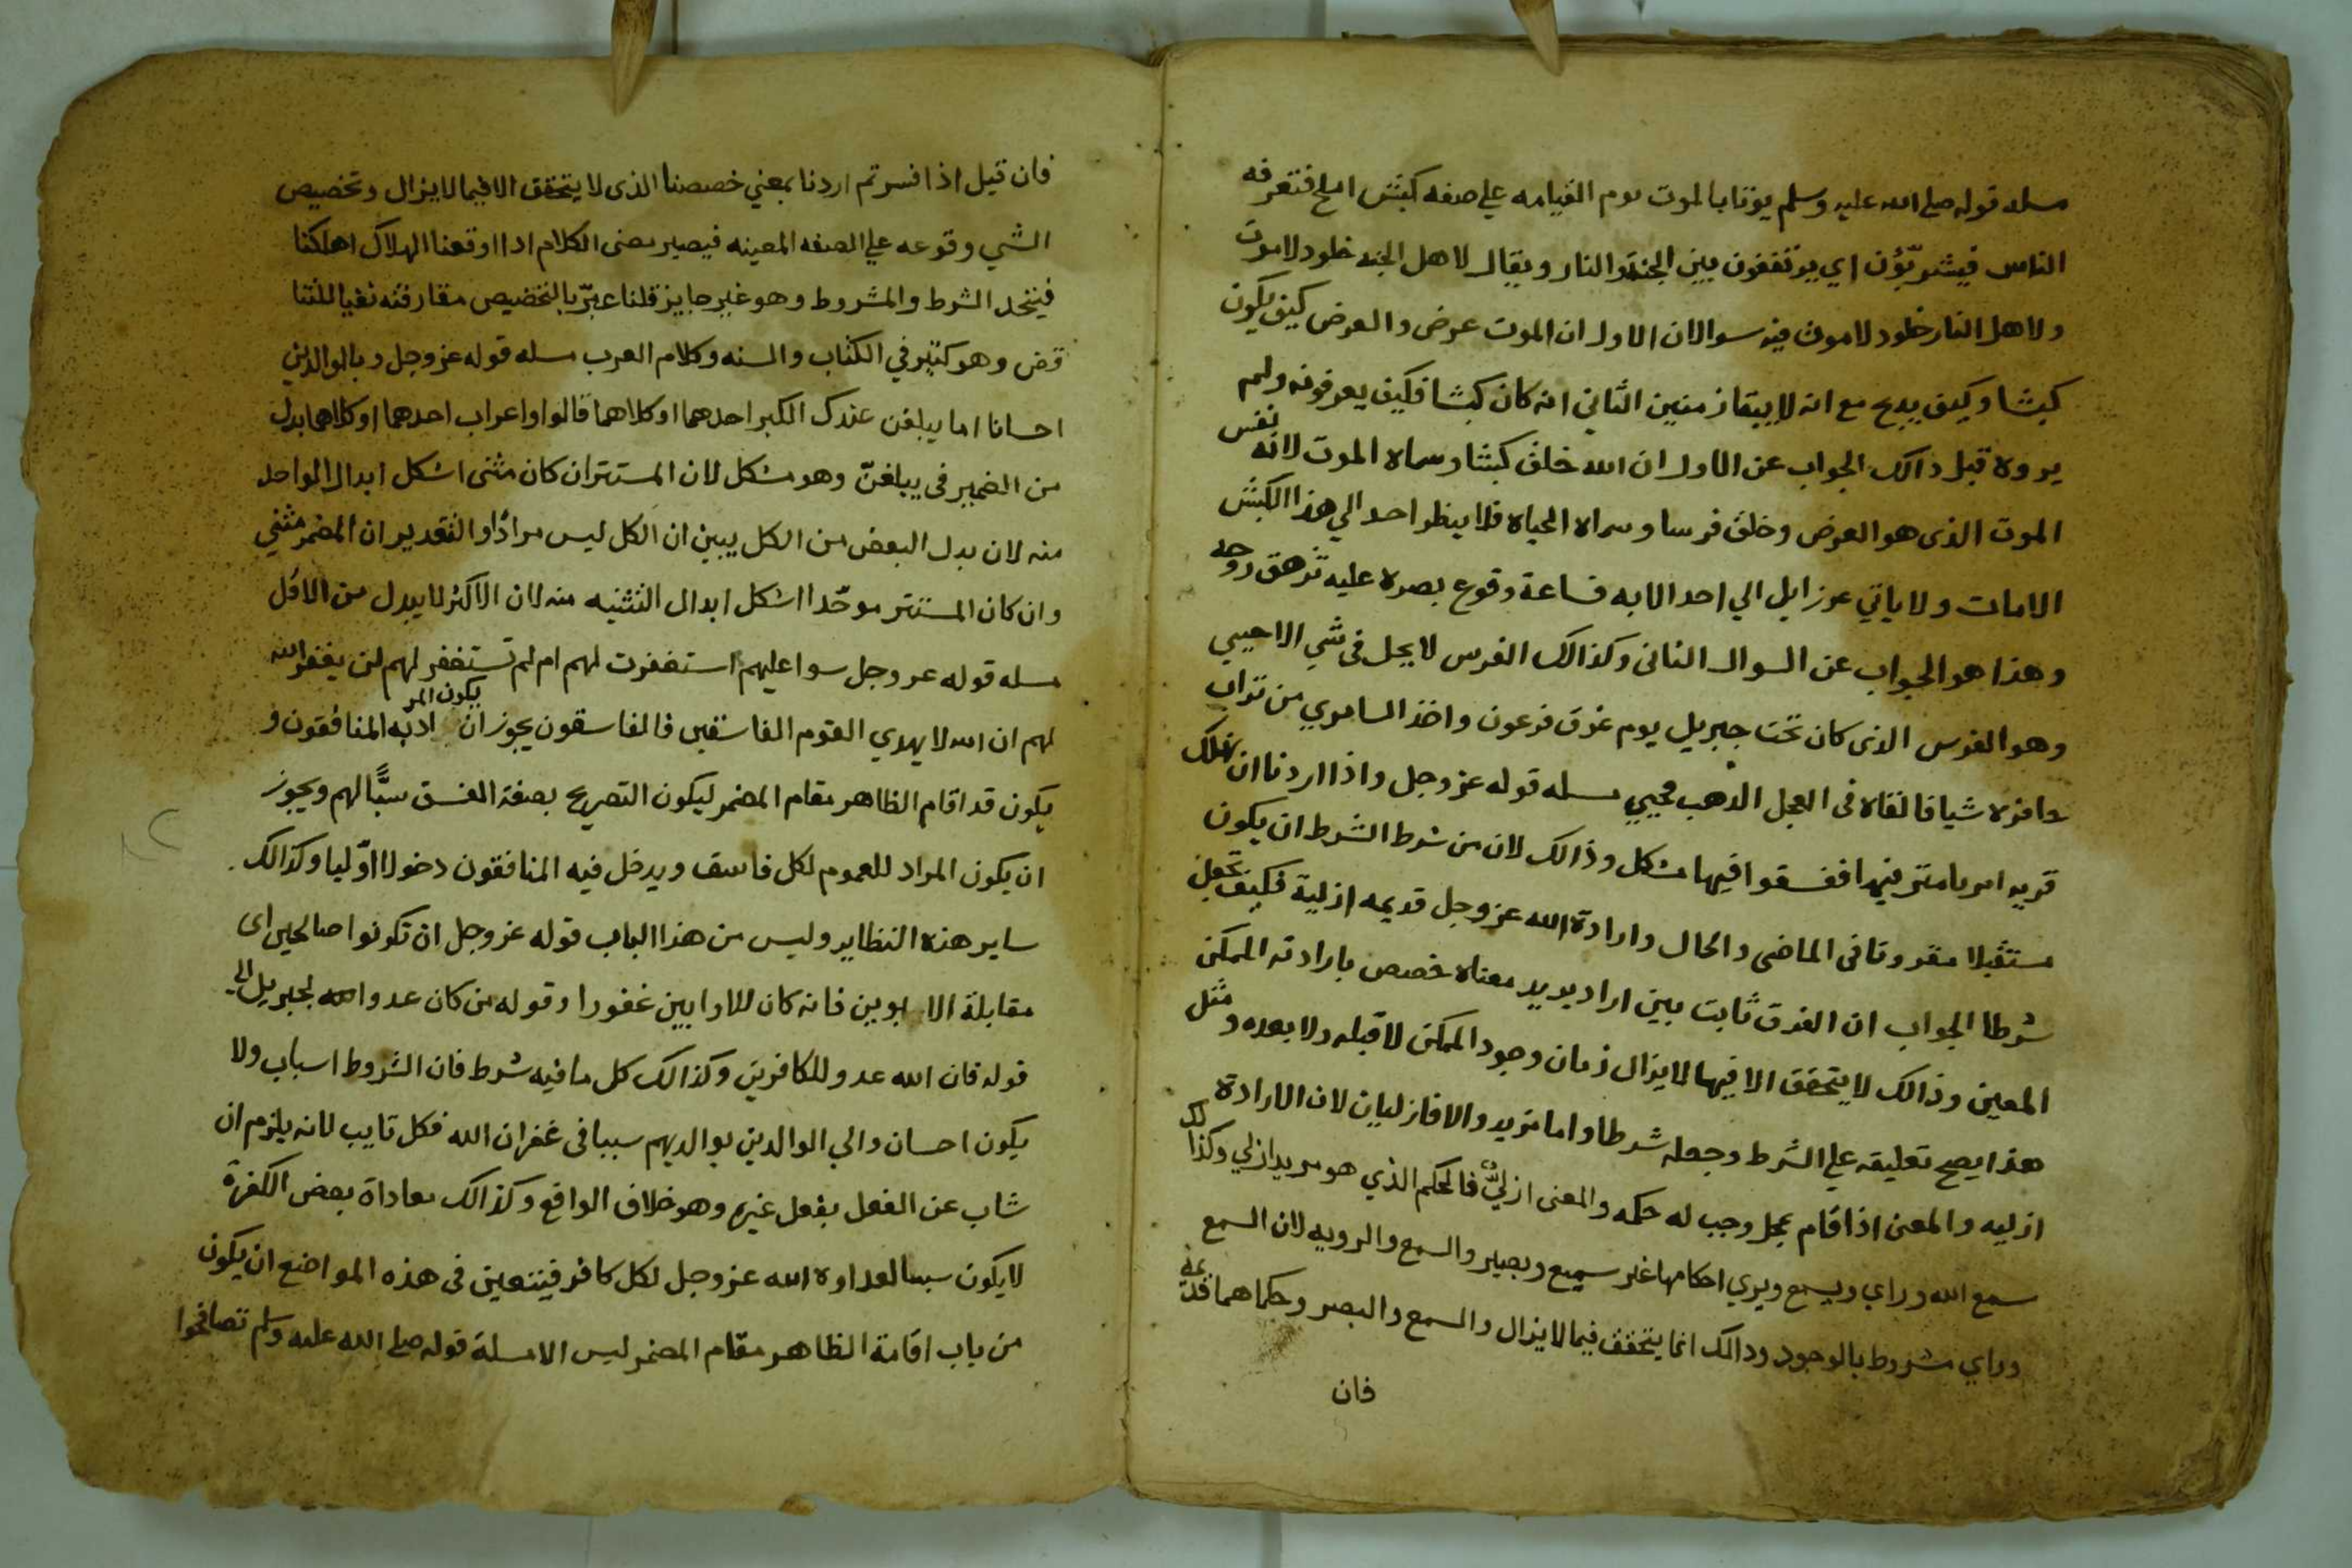 مسله قوله صلى الله عليه وسلم يوتا بالموت يوم القيامه علي صفه كبش املح فتعرفه
الناس فيشرئبّون اي يوتقفون بين الجنة والنار ويقال لاهل الجنه خلود لا موت
ولاهل النار خلود لا موت فيه سوالان الاول ان الموت عرض والعرض كيف يكون
كبشا وكيف يدبح مع انه لا يبقا زمنين الثاني انه كان كبشا فكيف يعرفونه ولم
يروه قبل ذالك الجواب عن الاول ان الله خلق كبشا وسماه الموت لانه نفس
الموت الذى هو العرض وخلق فرسا وسماه الحياه فلا ينظر احد الي هذا الكبش
الا مات ولا ياتي عزرايل الي احد الا به فساعة وقوع بصره عليه تزهق روحه
وهذا هو الجواب عن السوال الثانى وكذالك الفرس لا يحل فى شي الا حيي
وهو الفرس الذى كان تحت جبريل يوم غرق فرعون واخذ السامري من تراب
حافره شيا فالقاه فى العجل الذهب فحيي مسله قوله عز وجل واذا اردنا ان نهلك
قريه امرنا مترفيها ففسقوا فيها مشكل وذالك لان من شرط الشرط ان يكون
مستقبلا مقروتا فى الماضى والحال وارادة الله عز وجل قديمه ازلية فكيف تجعل
شرطا الجواب ان الفرق ثابت بين اراد يريد معناه خصص بارادته الممكن
المعين وذالك لا يتحقق الا فيما لا يزال زمان وجود الممكن لا قبله ولا بعده ومثل
هذا يصح تعليقه علي الشرط وجعله شرطا واما مريد والا فازليان لان الارادة
ازليه والمعنى اذا قام بمحل وجب له حكمه والمعنى ازليّ فالحكم الذي هو مريد ازلي وكذالك
سمع الله وراي ويسمع ويري احكامها غير سميع وبصير والسمع والرويه لان السمع
وراي مشروط بالوجود وذالك انما يتحقق فيما لا يزال والسمع والبصر وحكماهما قديمة
فان
فان قيل اذا فسرتم اردنا بمعني خصصنا الذى لا يتحقق الا فيما لا يزال وتخصيص
الشي وقوعه علي الصفه المعينه فيصير معنى الكلام اذا اوقعنا الهلاك اهلكنا
فيتحد الشرط والمشروط وهو غير جايز قلنا عبّر بالتخصيص مقارفته نفيا للتنا
قض وهو كثير في الكتاب والسنه وكلام العرب مسله قوله عز وجل وبالوالدين
احسانا اما يبلغن عندك الكبر احدهما او كلاهما قالوا واعراب احدهما او كلاهما بدل
من الضمير فى يبلغنّ وهو مشكل لان المستتر ان كان مثنى اشكل ابدال الواحد
منه لان بدل البعض من الكل يبين ان الكل ليس مرادًا والتقدير ان المضمر مثني
وان كان المستتر موحّدا اشكل ابدال التثنيه منه لان الاكثر لا يبدل من الاقل
مسله قوله عز وجل سوا عليهم استغفرت لهم ام لم تستغفر لهم لن يغفر الله
لهم ان الله لا يهدي القوم الفاسقين فالفاسقون يجوز ان يكون المراد به المنافقون و
يكون قد اقام الظاهر مقام المضمر ليكون التصريح بصفة الفسق سبًّا لهم ويجوز
ان يكون المراد للعموم لكل فاسق ويدخل فيه المنافقون دخولا اوّليا وكذالك
ساير هذه النظاير وليس من هذا الباب قوله عز وجل ان تكونوا صالحين اى
مقابلة الابوين فانه كان للاوابين غفورا وقوله من كان عدوا لجبريل الي
قوله فان الله عدو للكافرين وكذالك كل ما فيه شرط فان الشروط اسباب ولا
يكون احسان والي الوالدين بوالديهم سببا فى غفران الله فكل تايب لانه يلزم ان
شاب عن الفعل بفعل غيره وهو خلاف الواقع وكذالك معاداة بعض الكفرة
لا يكون سببا لعداوة الله عز وجل لكل كافر فيتعين فى هذه المواضع ان يكون
من باب اقامة الظاهر مقام المضمر ليس الا مسلة قوله صلى الله عليه وسلم تصافحوا